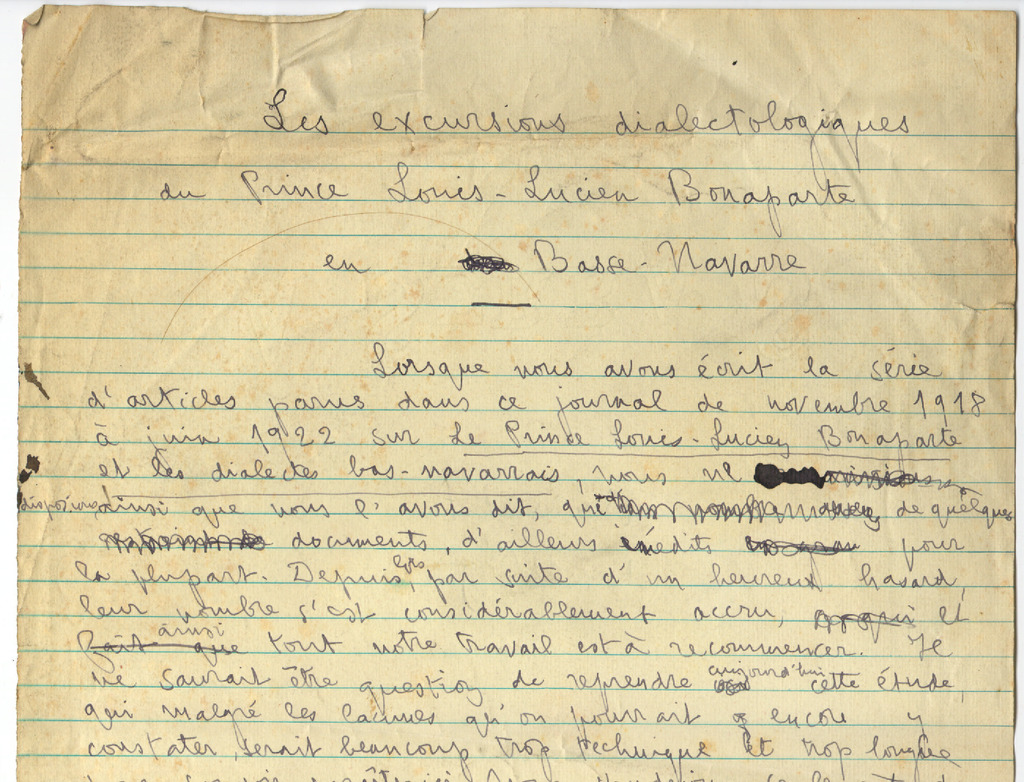 Les excursions dialectologiques
du Prince Louis-Lucien Bonaparte
en Basse-Navarre
Lorsque nous avons écrit la série
d'articles parus dans ce journal de novembre 1918
à juin 1922 sur Le Prince Louis-Lucien Bonaparte
et les dialectes bas-navarrais, nous ne
disposions, ainsi que nous l'avons dit, que de quelques
documents, d'ailleurs inédits pour
la plupart. Depuis lors, par suite d'un heureux hasard,
leur nombre s'est considérablement accru, et
ainsi
fait que tout notre travail est à recommencer. Il
aujourd'hui
ne saurait être question de reprendre cette étude,
qui malgré les lacunes qu'on pourrait encore y
constater, serait beaucoup trop technique et trop longue